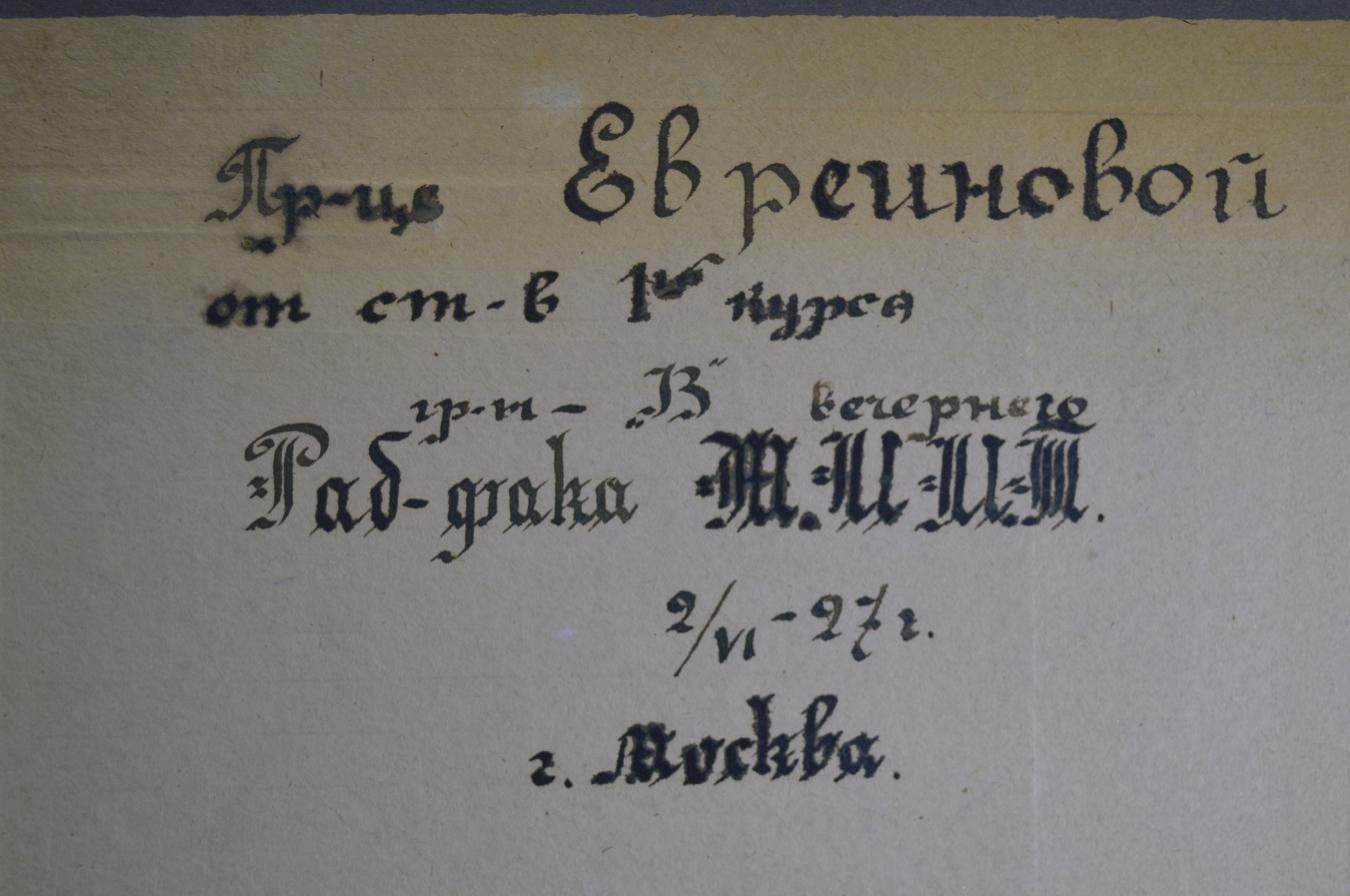 Пр-це Евреиновой
от ст-в 1го курса
гр-п - „В" вечернего
Раб-фака М.И.И.Т.
2/VI - 27 г.
г. Москва.